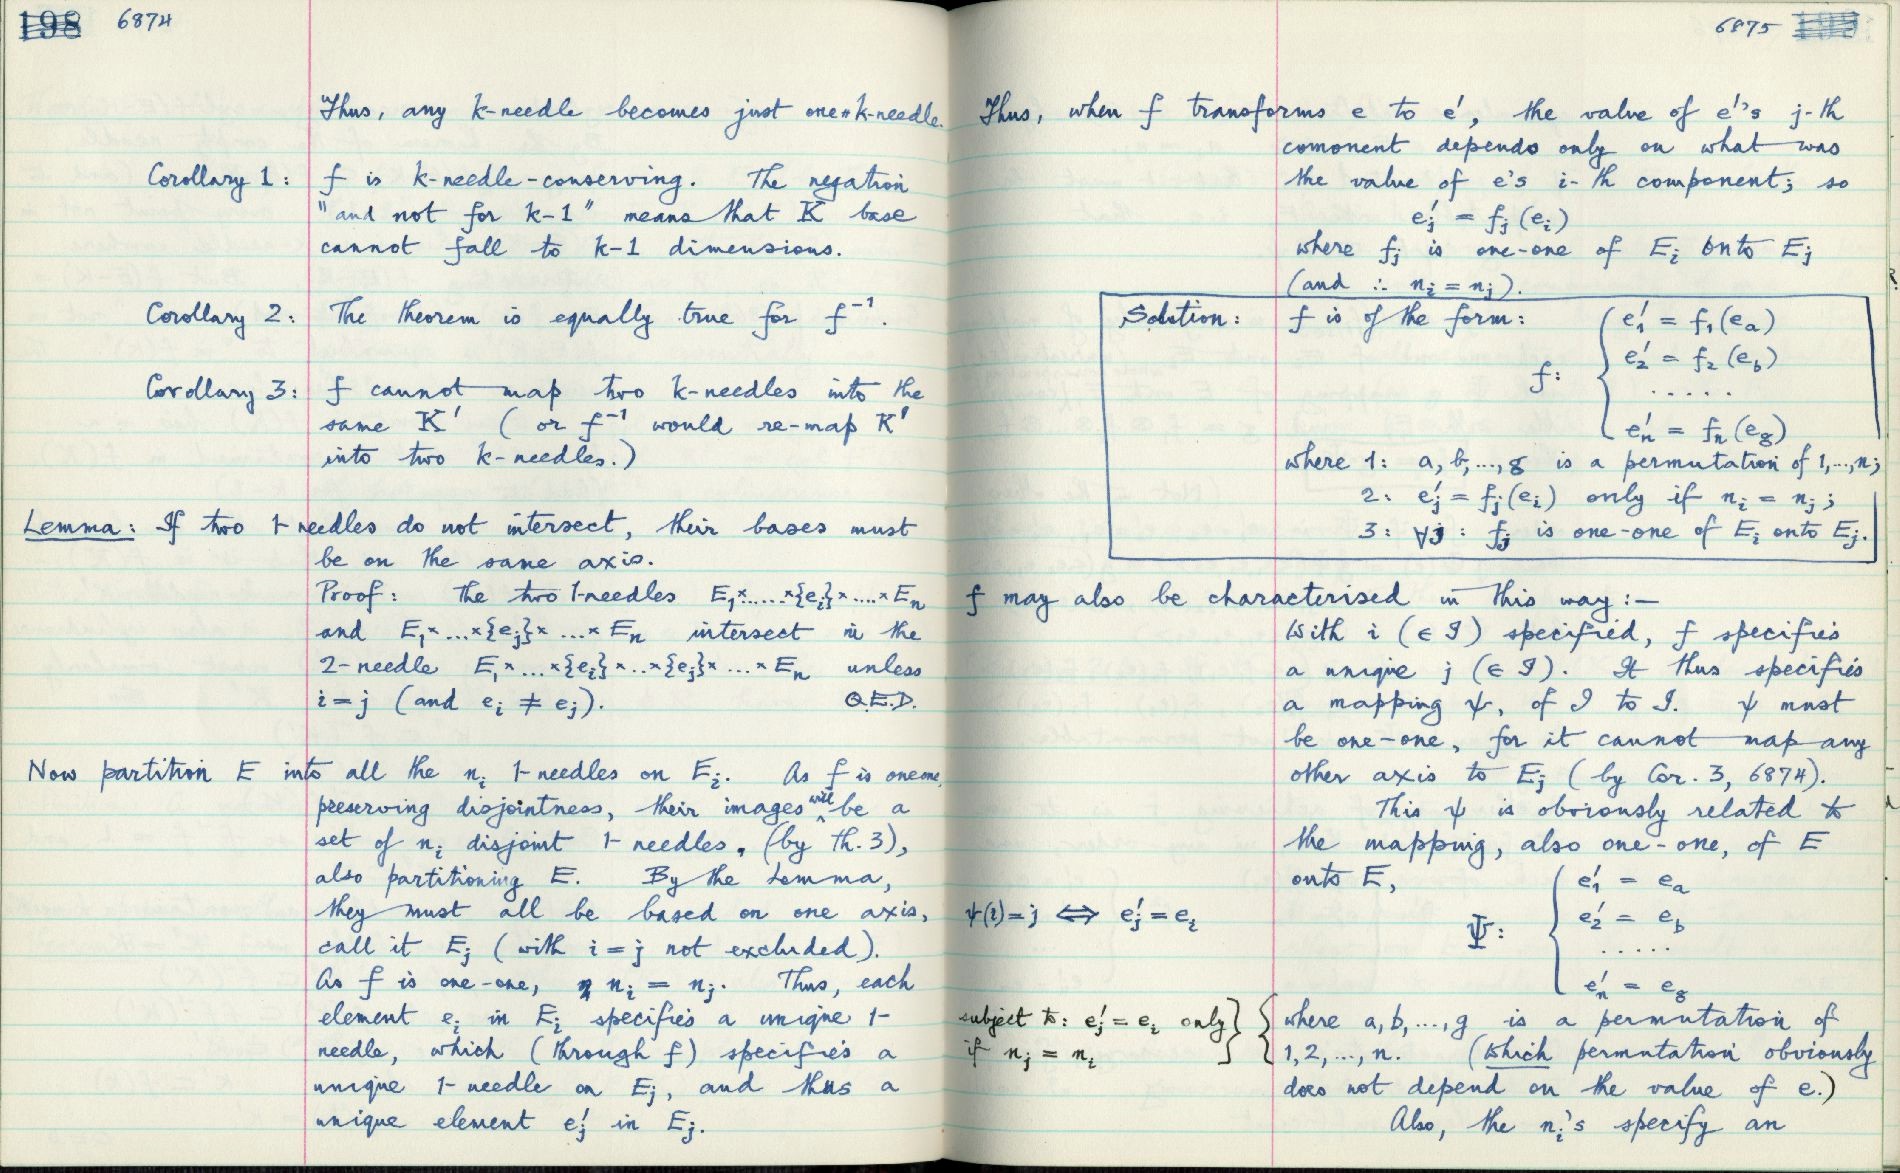 198 6874
Thus, any k-needle becomes just one k-needle.
Corollary 1: f is k-needle-conserving. The negation
"and not for k-1" means that K base
cannot fall to k-1 dimensions.
Corollary 2: The theorem is equally true for f⁻¹.
Corollary 3: f cannot map two k-needles into the
same K' (or f⁻¹ would re-map K'
into two k-needles.)
Lemma: If two 1-needles do not intersect, their bases must
be on the same axis.
Proof: The two 1-needles E₁×.....×{eᵢ}×....×Eₙ
and E₁×...×{eⱼ}×...×Eₙ intersect in the
2-needle E₁×...×{eᵢ}×..×{eⱼ}×...×Eₙ unless
i=j (and eᵢ ≠ eⱼ). Q.E.D.
Now partition E into all the nᵢ 1-needles on Eᵢ. As f is one-one,
preserving disjointness, their images will be a
set of nᵢ disjoint 1-needles, (by th. 3),
also partitioning E. By the Lemma,
they must all be based on one axis,
call it Eⱼ (with i=j not excluded).
As f is one-one, nᵢ = nⱼ. Thus, each
element eᵢ in Eᵢ specifies a unique 1-
needle, which (through f) specifies a
unique 1-needle on Eⱼ, and thus a
unique element eⱼ' in Eⱼ.
6875
Thus, when f transforms e to e', the value of e''s j-th
comonent depends only on what was
the value of e's i-th component; so
eⱼ' = fⱼ(eᵢ)
where fⱼ is one-one of Eᵢ onto Eⱼ
(and ∴ nᵢ = nⱼ).
Solution: f is of the form:
f: { e₁' = f₁(eₐ)
e₂' = f₂(e_b)
.....
eₙ' = fₙ(e_g)
where 1: a, b, ..., g is a permutation of 1,...,n;
2: eⱼ' = fⱼ(eᵢ) only if nᵢ = nⱼ;
3: ∀j: fⱼ is one-one of Eᵢ onto Eⱼ.
f may also be characterised in this way:—
With i (∈ I) specified, f specifies
a unique j (∈ I). It thus specifies
a mapping ψ, of I to I. ψ must
be one-one, for it cannot map any
other axis to Eⱼ (by Cor. 3, 6874).
This ψ is obviously related to
the mapping, also one-one, of E
onto E,
ψ(i)=j ⟺ eⱼ'=eᵢ
Ψ: { e₁' = eₐ
e₂' = e_b
.....
eₙ' = e_g
subject to: eⱼ'=eᵢ only
if nⱼ = nᵢ
where a, b, ..., g is a permutation of
1, 2, ..., n. (Which permutation obviously
does not depend on the value of e.)
Also, the nᵢ's specify an